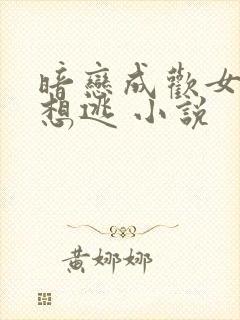 暗戀成歡女
想逃 小說
黃娜娜